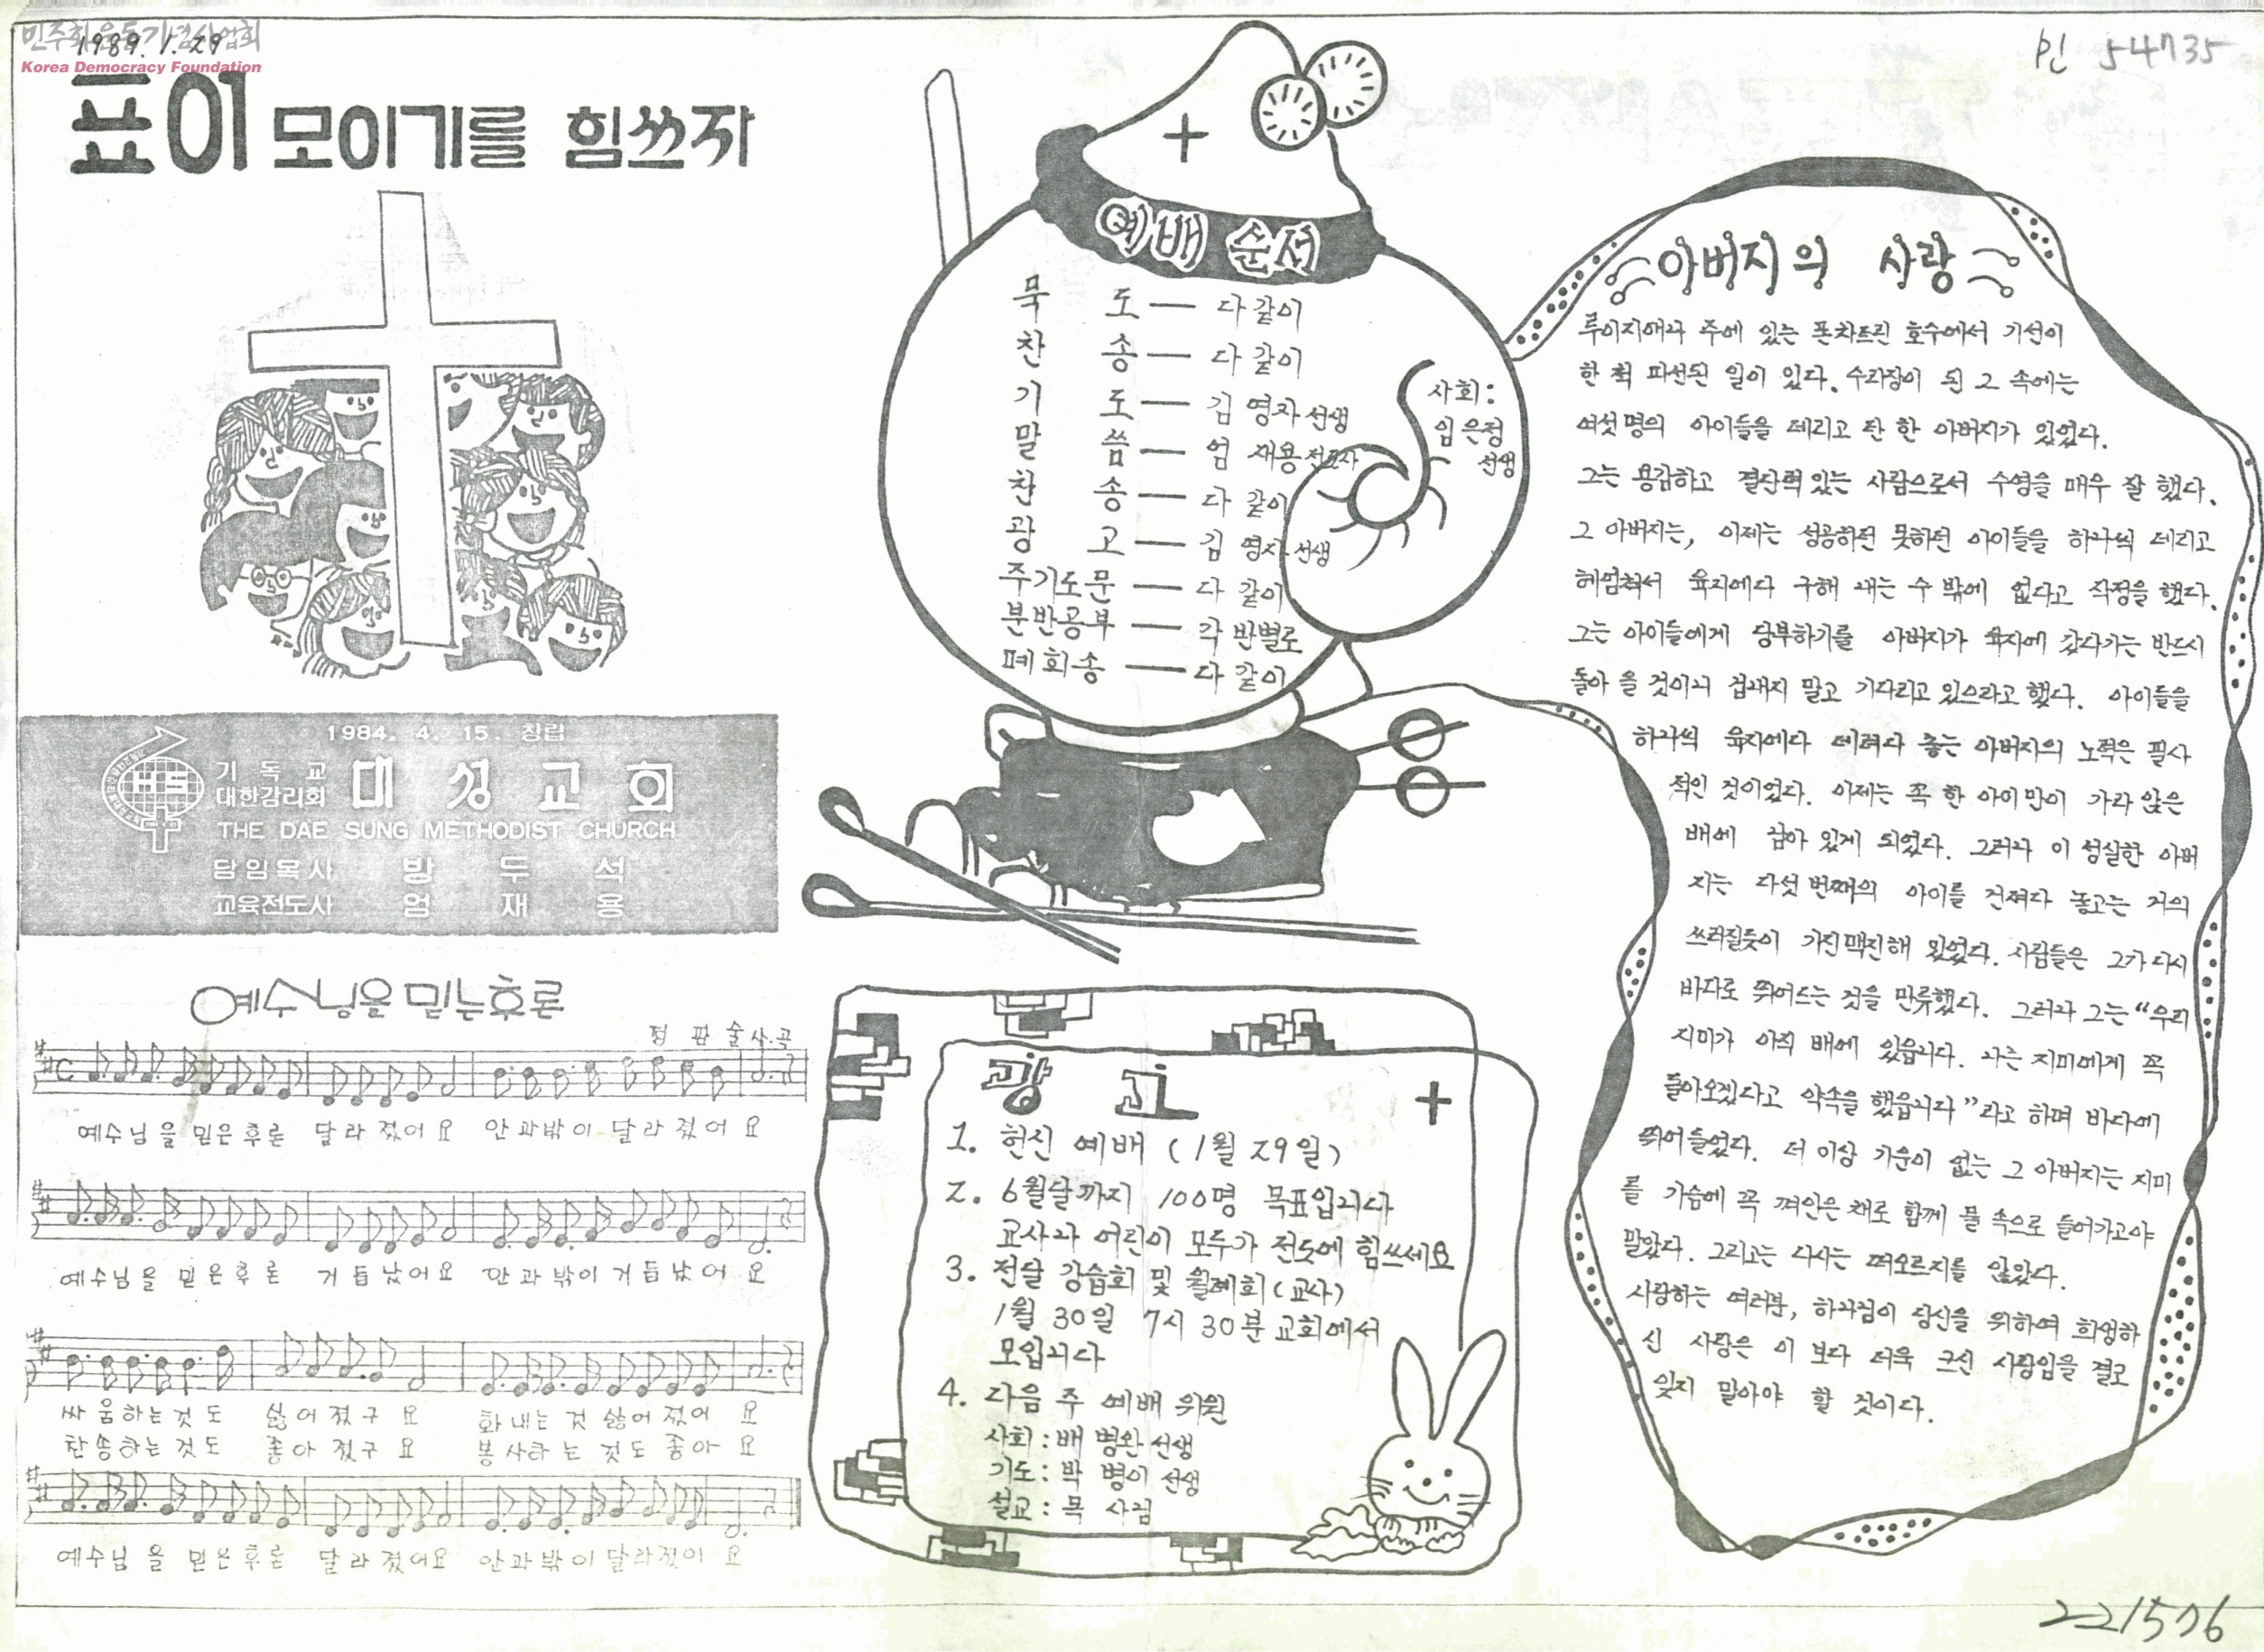 민주화운동기념사업회
1989. 1. 29
Korea Democracy Foundation
인 54735
표이 모이기를 힘쓰자
1984. 4. 15. 창립
기독교
대한감리회
대성교회
THE DAE SUNG METHODIST CHURCH
담임목사 방두석
교육전도사 엄재용
예수님을 믿는후론
정 판 술 사.곡
예수님을 믿은후론 달라졌어요 안과밖이 달라졌어요
예수님을 믿은후론 거듭났어요 안과밖이 거듭났어요
싸움하는것도 싫어졌구요 화내는것 싫어졌어요
찬송하는것도 좋아졌구요 봉사하는것도 좋아요
예수님을 믿은후론 달라졌어요 안과밖이 달라졌어요
예배 순서
묵 도 — 다 같이
찬 송 — 다 같이
기 도 — 김 영자 선생
말 씀 — 엄 재용 전도사
찬 송 — 다 같이
광 고 — 김 영자 선생
주기도문 — 다 같이
분반공부 — 각 반별로
폐회송 — 다 같이
사회:
임은정
선생
광고
1. 헌신 예배 (1월 29일)
2. 6월달까지 100명 목표입니다
교사와 어린이 모두가 전도에 힘쓰세요
3. 전달 강습회 및 월례회 (교사)
1월 30일 7시 30분 교회에서
모입니다
4. 다음 주 예배 위원
사회 : 배 병완 선생
기도 : 박 병이 선생
설교 : 목 사님
아버지의 사랑
루이지애나 주에 있는 폰차트린 호수에서 기선이
한 척 파선된 일이 있다. 수라장이 된 그 속에는
여섯명의 아이들을 데리고 탄 한 아버지가 있었다.
그는 용감하고 결단력있는 사람으로서 수영을 매우 잘 했다.
그 아버지는, 이제는 성공하던 못하던 아이들을 하나씩 데리고
헤엄쳐서 육지에다 구해 내는 수 밖에 없다고 작정을 했다.
그는 아이들에게 당부하기를 아버지가 육지에 갔다가는 반드시
돌아 올 것이니 겁내지 말고 기다리고 있으라고 했다. 아이들을
하나씩 육지에다 데려다 놓는 아버지의 노력은 필사
적인 것이었다. 이제는 꼭 한 아이만이 가라 앉은
배에 남아 있게 되었다. 그러나 이 성실한 아버
지는 다섯 번째의 아이를 건져다 놓고는 거의
쓰러질듯이 기진맥진해 있었다. 사람들은 그가 다시
바다로 뛰어드는 것을 만류했다. 그러나 그는 “우리
지미가 아직 배에 있읍니다. 나는 지미에게 꼭
돌아오겠다고 약속을 했읍니다”라고 하며 바다에
뛰어들었다. 더 이상 기운이 없는 그 아버지는 지미
를 가슴에 꼭 껴안은 채로 함께 물 속으로 들어가고야
말았다. 그리고는 다시는 떠오르지를 않았다.
사랑하는 여러분, 하나님이 당신을 위하여 희생하
신 사랑은 이 보다 더욱 크신 사랑임을 결코
잊지 말아야 할 것이다.
221576